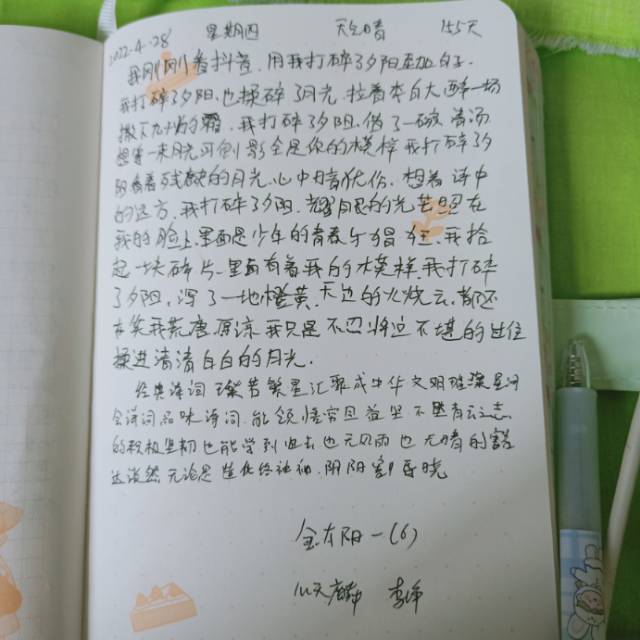 2022.4.28 星期四 天气晴 155天
我刚刚看抖音,用我打碎了夕阳
我打碎了夕阳,也揉碎了月光,拉着李白大醉一场
撒下九州的霜,我打碎了夕阳,偷了一碗清汤
月光可倒影全是你的模样 我打碎了夕
阳看着残缺的月光,心中暗忧伤,想着诗中
的远方,我打碎了夕阳,耀眼的光芒照在
我的脸上里面是少年的青春与倡狂,我拾
起一块碎片,里面有着我的模样,我打碎
了夕阳,泻了一地橙黄,天边的火烧云,都还
在笑我荒唐 原谅我只是不忍将这不堪的过往
揉进清清白白的月光。
经典诗词 璀若繁星汇聚成中华文明璀璨星河
诗词品味诗词,能领悟穷且益坚,不坠青云之志
的积极坚韧也能学到归去也无风雨也无晴的豁
达淡然,无论是造化钟神秀,阴阳割昏晓